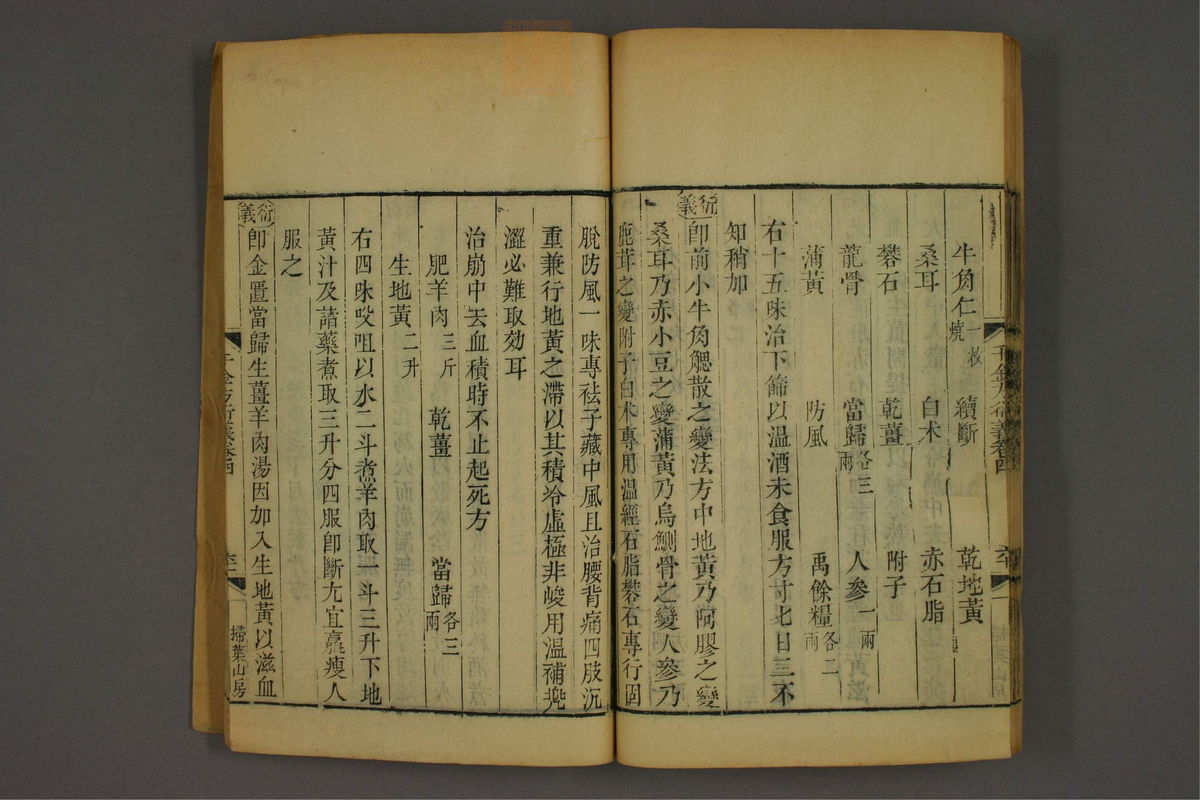 牛角仁一枚燒 續斷 乾地黃
桑耳 白朮 赤石脂
礬石 乾薑 附子
龍骨 當歸各三兩 人參一兩
蒲黃 防風 禹餘糧各二兩
右十五味治下篩以温酒未食服方寸匕日三不
知稍加
衍義 卽前小牛角䚡散之變法方中地黃乃阿膠之變
桑耳乃赤小豆之變蒲黃乃烏鰂骨之變人參乃
鹿茸之變附子白朮專用溫經石脂礬石專行固
脫防風一味專祛子藏中風且治腰背痛四肢沉
重兼行地黃之滯以其積冷虛極非峻用溫補兠
澀必難取効耳
治崩中去血積時不止起死方
肥羊肉三斤 乾薑 當歸各三兩
生地黃二升
右四味㕮咀以水二斗煮羊肉取一斗三升下地
黃汁及諸藥煮取三升分四服卽斷尢宜羸瘦人
服之
衍義 卽金匱當歸生薑羊肉湯因加入生地黃以滋血
千金方衍義卷四
掃葉山房